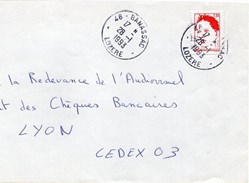 48 - BANASSAC
17 H
28 - 1
1993
LOZERE
17 H
28 - 1
1993
LOZERE
la Redevance de l'Audiovisuel
t des Chèques Bancaires
LYON
CEDEX 03